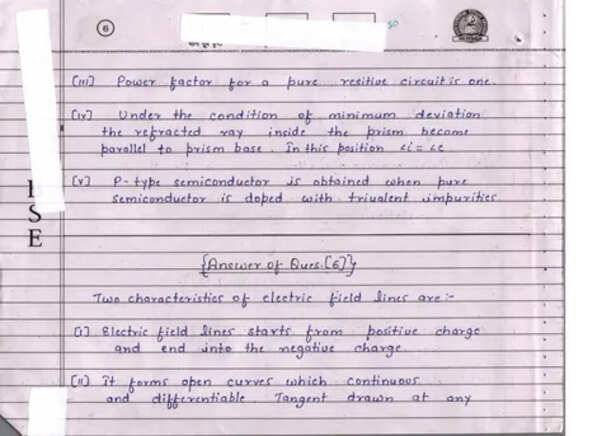 6
50
[iii] Power factor for a pure resitive circuit is one.
[iv] Under the condition of minimum deviation
the refracted ray inside the prism become
parallel to prism base. In this position ∠i = ∠e
[v] P-type semiconductor is obtained when pure
semiconductor is doped with trivalent impurities.
S
E
{Answer of Ques.[6]}
Two characteristics of electric field lines are :-
[i] Electric field lines starts from positive charge
and end into the negative charge.
[ii] It forms open curves which continuous
and differentiable. Tangent drawn at any